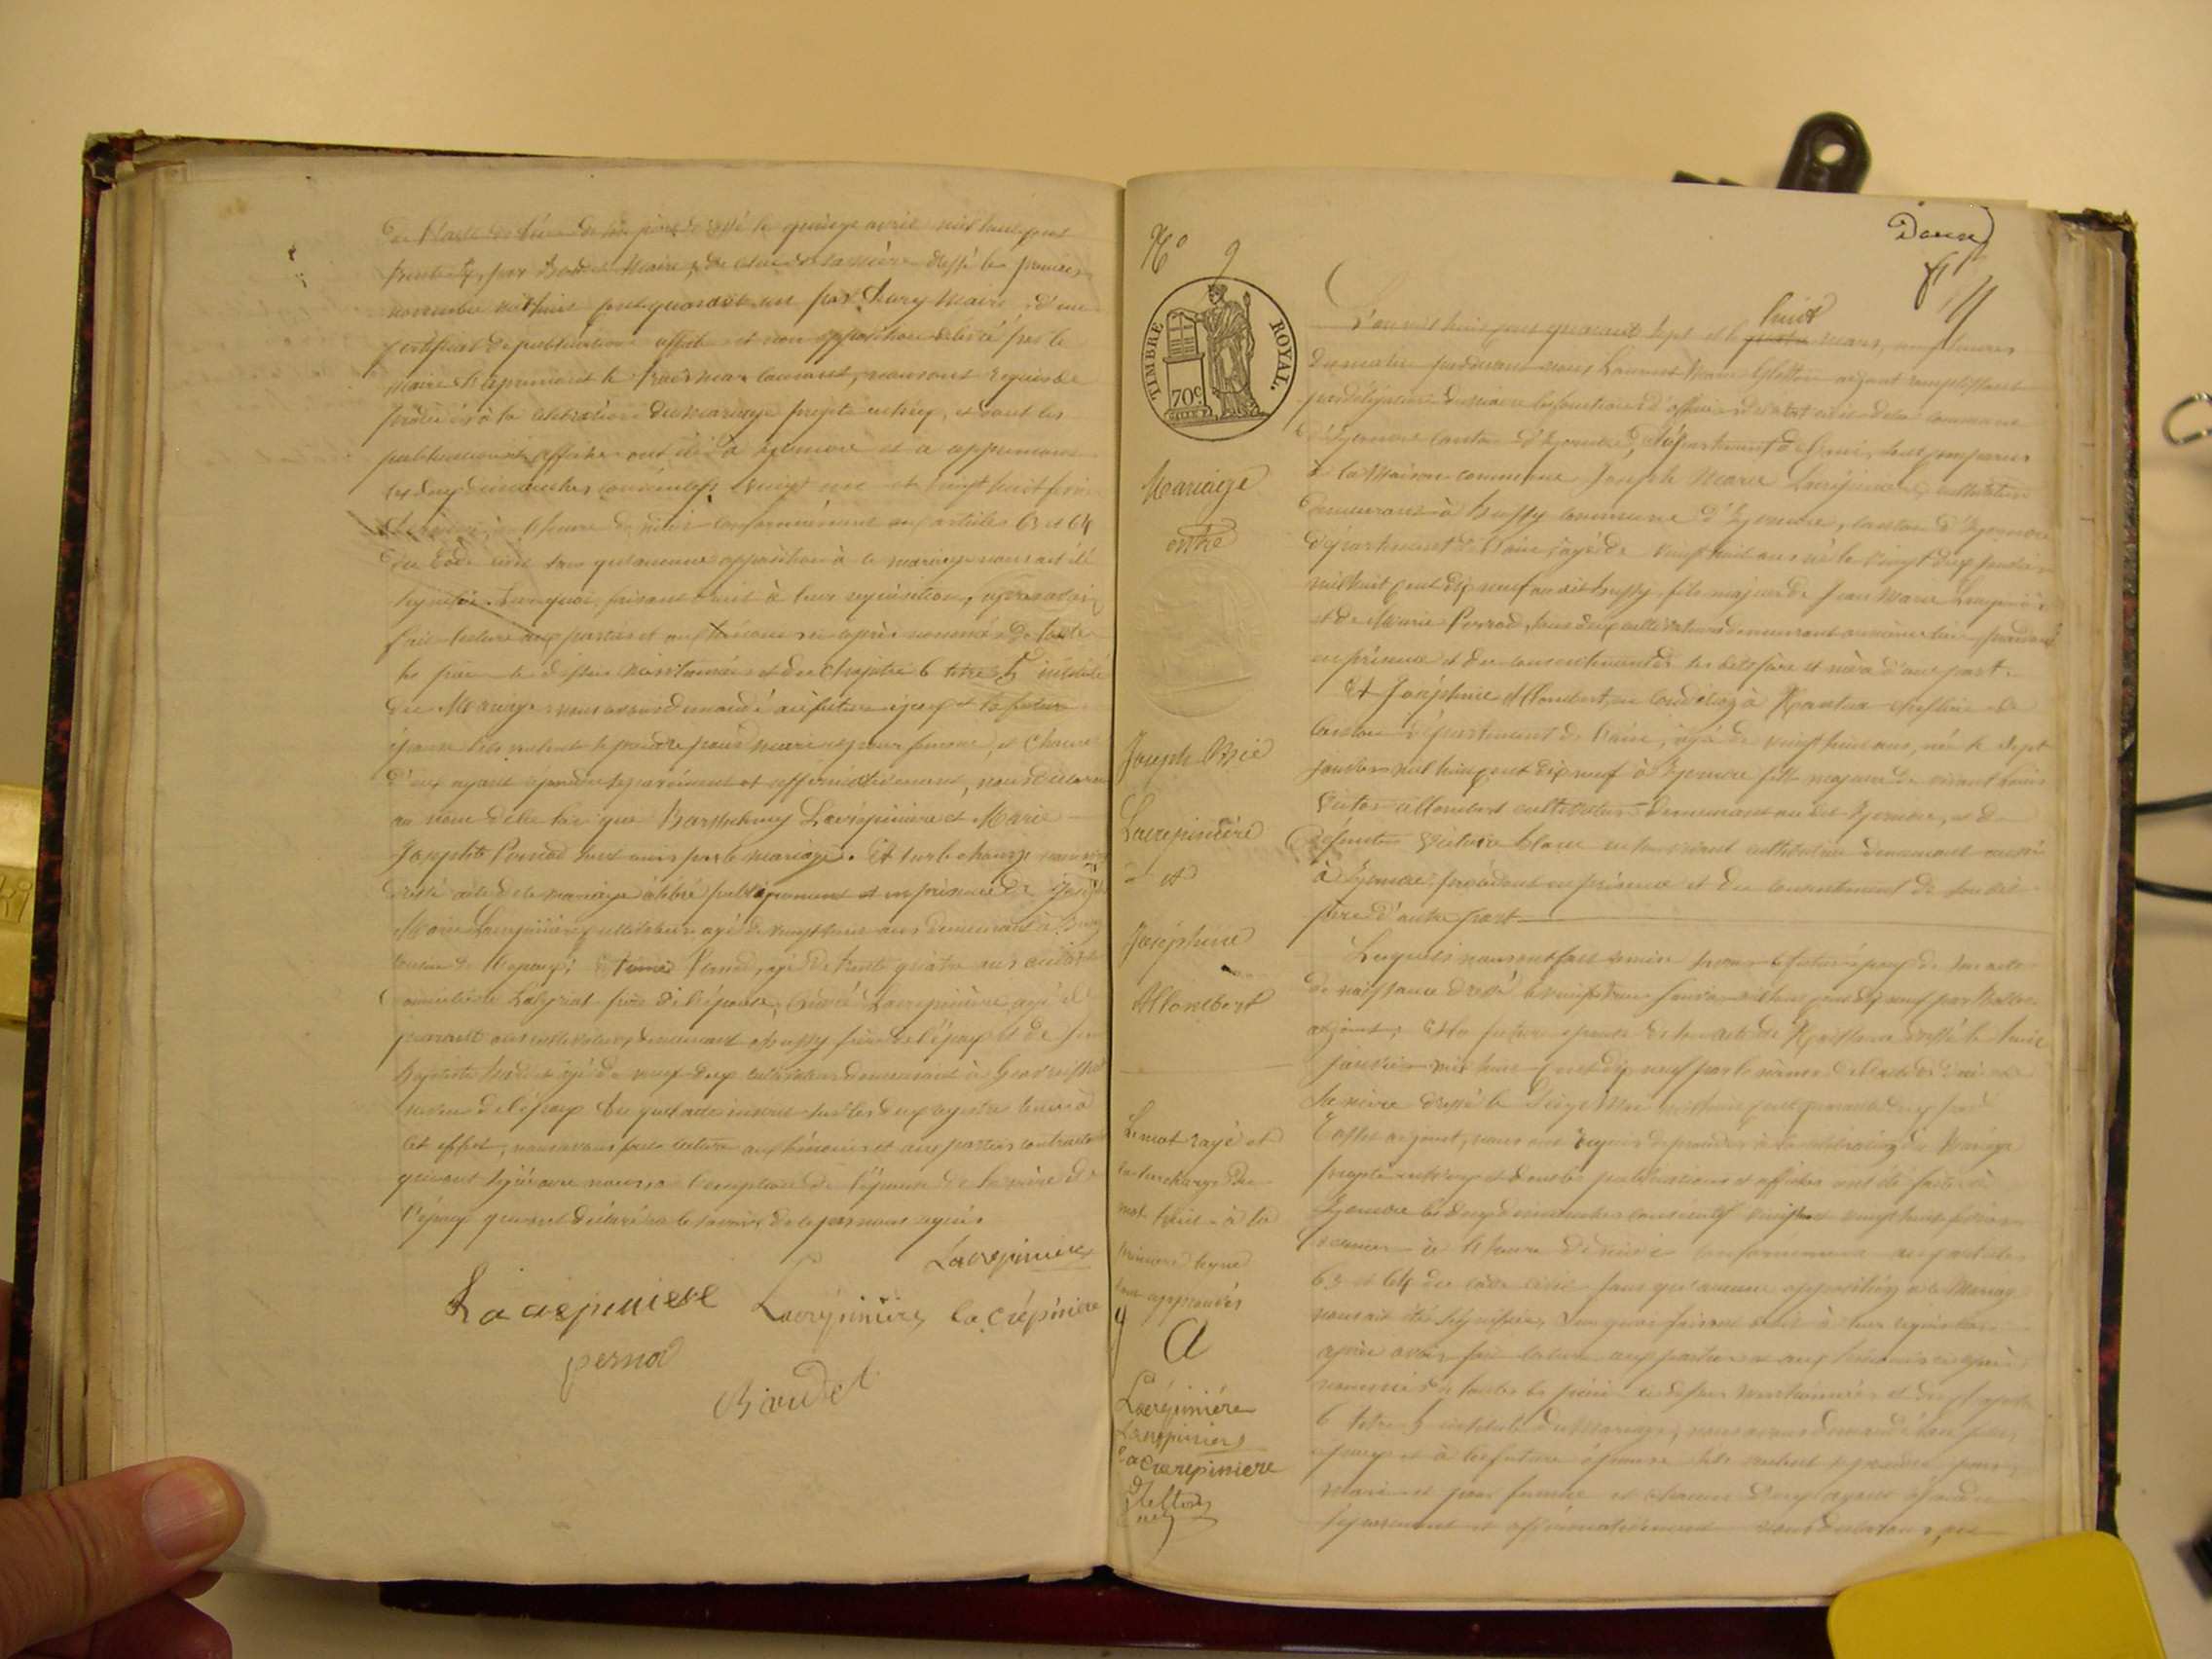 de l'acte de décès de son père dressé le quinze avril mil huit cent
trente six, par Maire, de celui de sa mère dressé le premier
novembre mil huit cent quarante un par Maire, d'un
certificat de publication affiche et non opposition délivré par le
Maire d'Apremont le trois mars courant, nous ont requis de
procéder à la célébration du mariage projeté entr'eux, et dont les
publications et affiches ont été à Izernore et à Apremont
les deux dimanches consécutifs vingt un et vingt huit février
dernier, à l'heure de midi conformément aux articles 63 et 64
du Code civil sans qu'aucune opposition à ce mariage nous ait été
signifiée. Sur quoi, faisant droit à leur réquisition, après avoir
fait lecture aux parties et aux témoins ci après nommés de toutes
les pièces ci dessus mentionnées et du Chapitre 6 titre 5 intitulé
du Mariage nous avons demandé au futur époux et à la future
épouse s'ils veulent se prendre pour mari et pour femme, et chacun
d'eux ayant répondu séparément et affirmativement, nous déclarons
au nom de la loi que Barthelemy Lacrépinière et Marie
Josephte Pernod sont unis par le mariage. Et sur le champ nous avons
dressé acte de ce mariage célébré publiquement et en présence de Joseph
Marie Lacrépinière cultivateur âgé de vingt huit ans demeurant à Bussy
cousin de l'époux; Pernod, âgé de trente quatre ans
frère de l'épouse, Lacrépinière âgé de
quarante ans cultivateur, demeurant à Bussy frère de l'époux et de Jean
Baptiste âgé de deux cultivateur demeurant à Geovreissiat
de l'époux. Du quel acte inscrit sur les deux registres tenus à
cet effet, nous avons fait lecture aux témoins et aux parties contractantes
qui ont signé avec nous, à l'exception de l'épouse de la mère de
l'époux qui ont déclaré ne le savoir de ce par nous requis
Lacrepiniere
Lacrepiniere Lacrépinière la crépiniere
pernod
Baudet
Douze
N° 9
TIMBRE ROYAL.
70c
Mariage
entre
Joseph Mie
Lacrepinière
et
Joséphine
Allombert
Le mot rayé et
la surcharge du
mot huit à la
première ligne
sont approuvés
A
Lacrépinière
Lacrepiniere
La Crepiniere
Gletton
huit
L'an mil huit cent quarante sept et le quatre mars, onze heures
du matin pardevant nous Laurent Marie Gletton adjoint remplissant
par délégation du maire les fonctions d'officier de l'état civil de la commune
d'Izernore canton d'Izernore, département de l'Ain, sont comparus
à la Maison commune Joseph Marie Lacrépinière cultivateur
demeurant à Bussy commune d'Izernore, canton d'Izernore
département de l'Ain, âgé de vingt huit ans né le vingt deux janvier
mil huit cent dix neuf au dit Bussy fils majeur de Jean Marie Lacrépinière
et de Marie Perrod, tous deux cultivateurs demeurant au même lieu, procédant
en présence et du consentement de ses dits père et mère d'une part.
Et Joséphine Allombert, à Nantua chef lieu de
canton département de l'Ain, âgée de vingt huit ans, née le sept
janvier mil huit cent dix neuf à Izernore fille majeure de vivant Louis
Victor Allombert cultivateur demeurant au dit Izernore, et de
défunte Victoire Blanc en son vivant cultivatrice demeurant aussi
à Izernore, procédant en présence et du consentement de son dit
père d'autre part
Lesquels nous ont fait remise savoir le futur époux de son acte
de naissance dressé le vingt trois janvier mil huit cent dix neuf par
adjoint; et la future épouse de son acte de Naissance dressé le huit
janvier mil huit cent dix neuf par le même de l'acte de décès de
sa mère dressé le mai mil huit cent quarante deux par
adjoint, nous ont requis de procéder à la célébration du Mariage
projeté entr'eux et dont les publications et affiches ont été faites à
Izernore les deux dimanches consécutifs vingt un et vingt huit février
dernier à l'heure de midi conformément aux articles
63 et 64 du code civil sans qu'aucune opposition à ce Mariage
nous ait été signifiée, Sur quoi faisant droit à leur réquisition
après avoir fait lecture aux parties et aux témoins ci après
nommés de toutes les pièces ci dessus mentionnées et du chapitre
6 titre 5 intitulé du Mariage, nous avons demandé au futur
époux et à la future épouse s'ils veulent se prendre pour
mari et pour femme et chacun d'eux ayant répondu
séparément et affirmativement nous déclarons, au